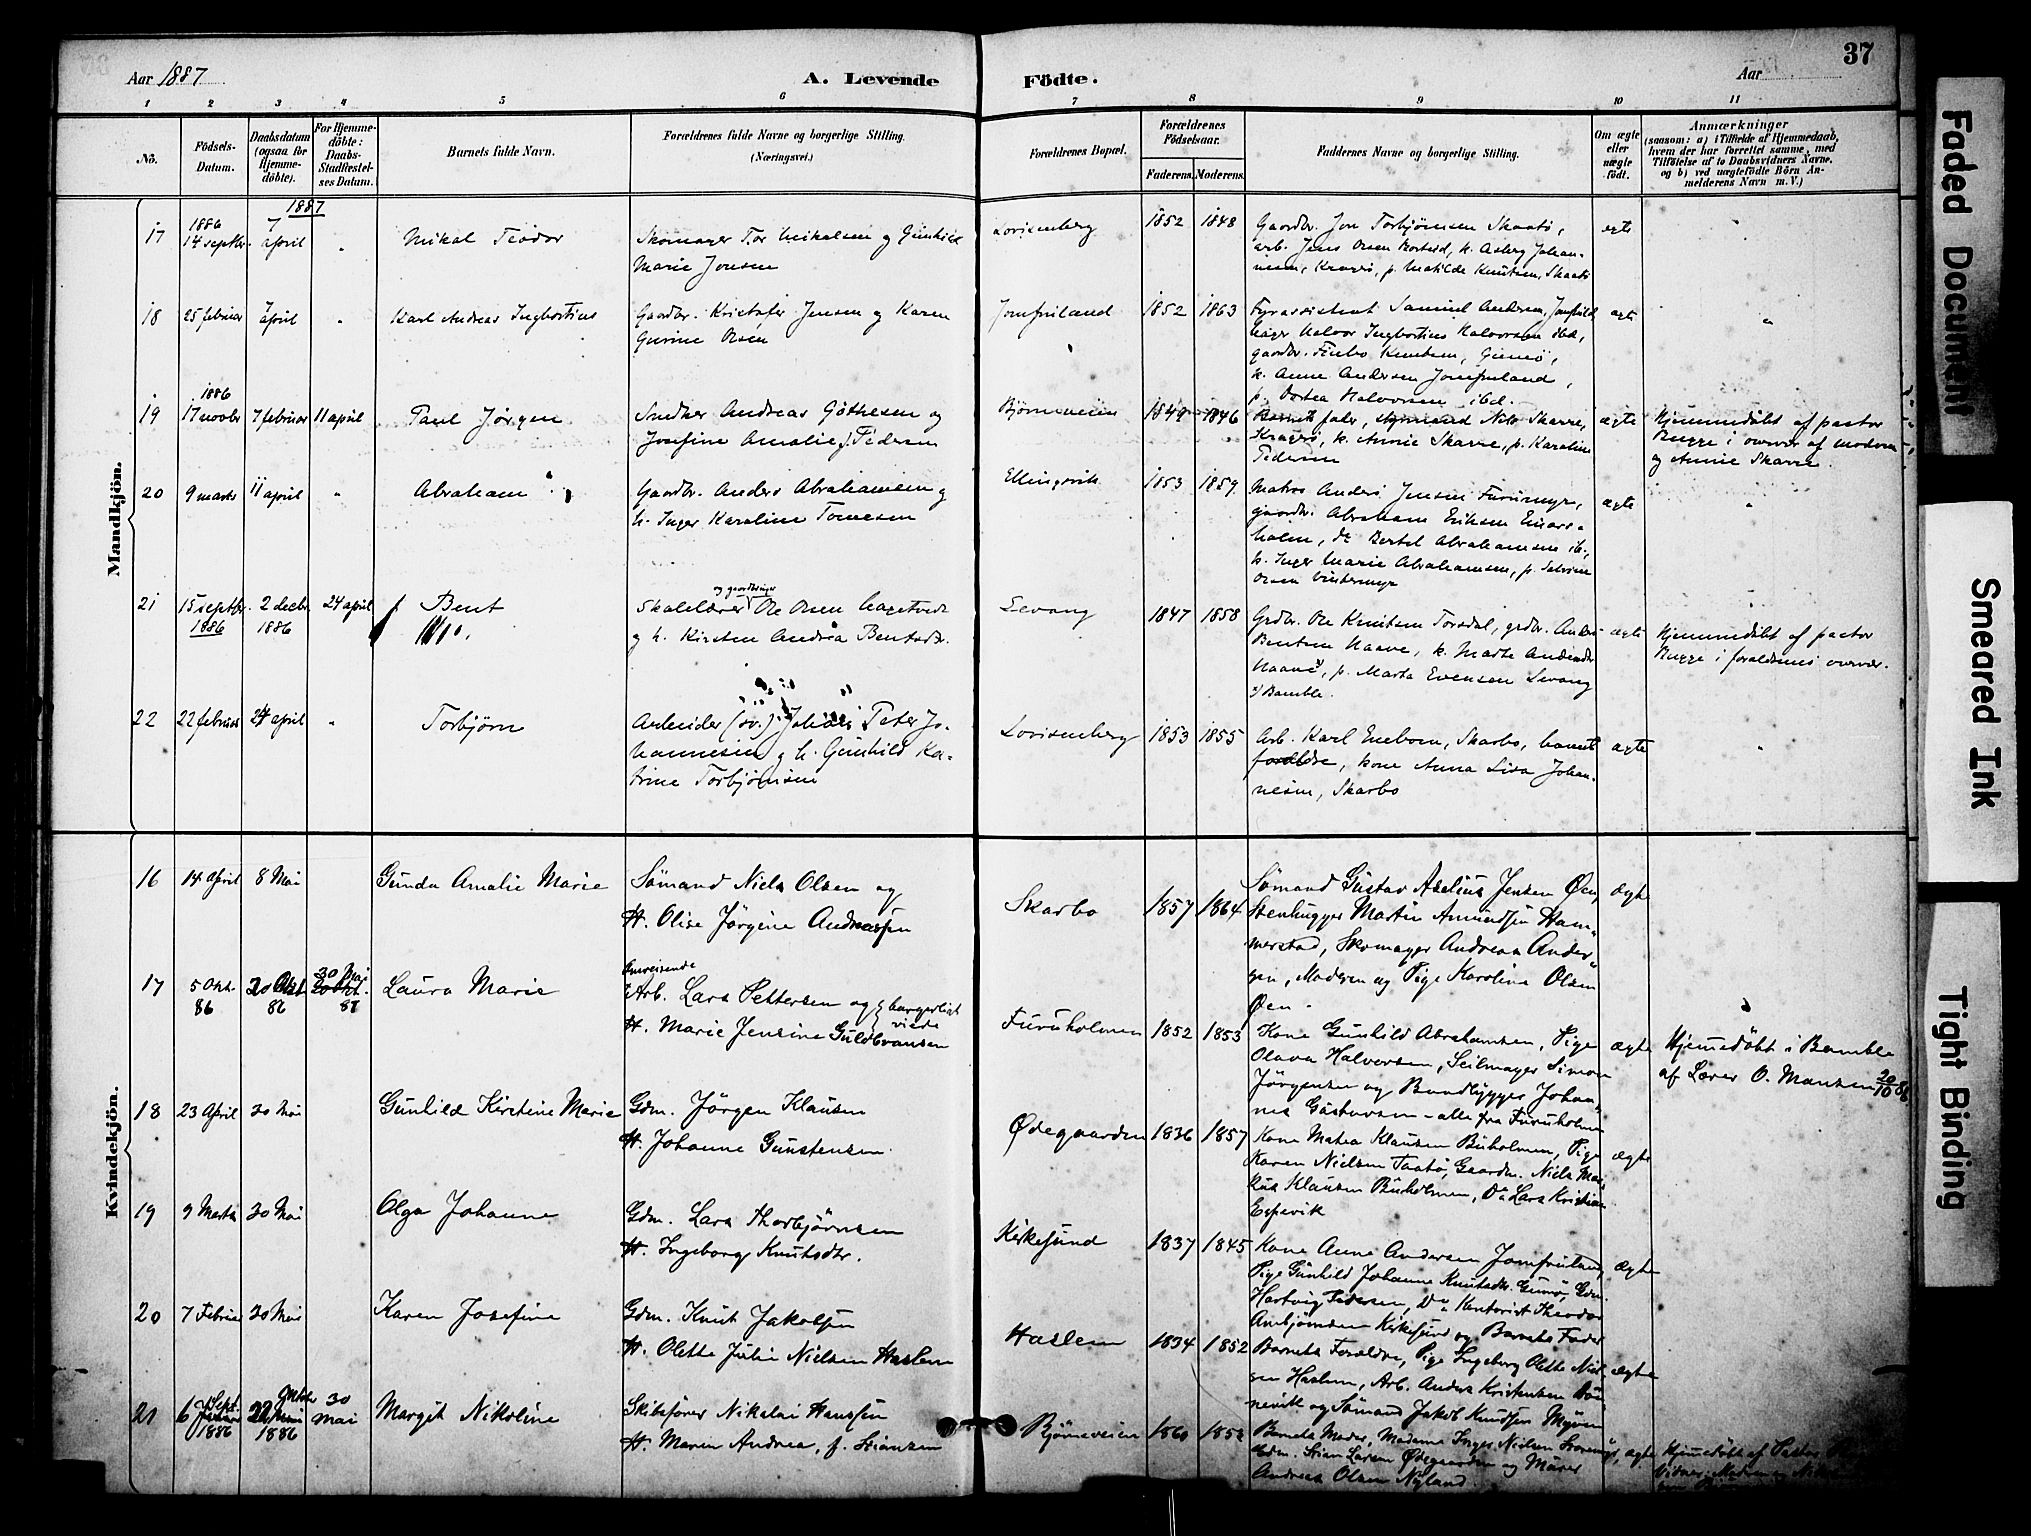 Aar 1887
A. Levende
Födte.
Aar
37
1 2 3 4 5 6 7 8 9 10 11
No.
Födsels-
Datum.
Daabsdatum
(ogsaa for
Hjemme-
döbte).
For Hjemme-
döbte:
Daabs-
Stadfæstel-
ses Datum.
Barnets fulde Navn.
Forældrenes fulde Navne og borgerlige Stilling.
(Næringsvei.)
Forældrenes Bopæl.
Forældrenes
Födselsaar.
Faderens. Moderens.
Faddernes Navne og borgerlige Stilling.
Om ægte
eller
uægte
födt.
Anmærkninger
(saasom: a) i Tilfælde af Hjemmedaab,
hvem der har forrettet samme, med
Tilföielse af to Daabsvidners Navne,
og b) ved uægtefödte Börn An-
melderens Navn m. V.)
Mandkjön.
1887
17
1886
14 septbr.
7
april
"
Mikal Teodor
Skomager Tor Mikalsen og Gunhild
Marie Jensen
Lovisenberg
1852 1848
Gaardbr. Jon Torbjørnsen Skaatø,
arb. Jens Olsen, k. Asberg Johan-
nesen, Kragerø, p. Matilde Knutsen, Skaatø
egte
"
18
25 februar
7
april
"
Karl Andreas Ingbortius
Gaardbr. Kristofer Jensen og Karen
Gurine Olsen
Jomfruland
1852 1863
Fyrassistent Samuel Andersen, Jomfruld
Halvor Ingbortius Halvorsen ibd,
gaardbr. Knutsen,
k. Anne Andersen Jomfruland,
p. Dortea Halvorsen ibd.
ægte
"
19
1886
17 novbr
7 februar
11 april
Paul Jørgen
Snedker Andreas Gøthesen og
Josefine Amalie f. Pedersen
Bjørneveien
1849 1846
Barnets fader, Nils Skarre,
Kragerø, k. Annie Skarre, p. Karoline
Pedersen
ægte
Hjemmedøbt af pastor
Bugge i overvær af moderen
og Annie Skarre.
20
9 marts
11 april
"
Abraham
Gaardbr. Anders Abrahamsen og
h. Inger Karoline Tomesen
Ellingsvik
1853 1859
Matros Anders Jensen Furumyr,
gaardbr. Abraham Eriksen Einars-
holm, do Bertel Abrahamsen ib.,
k. Inger Marie Abrahamsen, p.
Olsen Vintermyr
ægte
"
21
15 septbr.
1886
2 decbr.
1886
24 april
Bent
og gaardbruger
Skolelærer Ole Olsen Hagetvedt
og h. Kirsten Andrea Bentsdr.
Levang
1847 1858
Grdbr. Ole Knutsen Torsdal, grdbr. Anders
Bentsen Haave, k. Marte Andersdr
Haave, p. Marta Evensen Levang
x) Bamble.
ægte
Hjemmedøbt af pastor
Bugge i forældrenes overvær.
22
22 februar
24 april
"
Torbjørn
Arbeider (sv.) Johan Peter Jo-
hannesen og h. Gunhild Ka-
trine Torbjørnsen
Lovisenberg
1853 1855
Arb. Karl Eneborn, Skarbo, barnets
forældre, kone Anna Lisa Johan-
nesen, Skarbo
ægte
"
Kvindekjön.
16
14 April
8 Mai
Gunda Amalie Marie
Sømand Niels Olsen og
H. Olise Jørgine Andreassen
Skarbo
1857 1864
Sømand Gustav Axelius Jensen Øen,
Stenhugger Martin Amundsen Ham-
merstad, Skomager Andreas Ander-
sen, Moderen og Pige Karoline Olsen
Øen.
Ægte
17
5 Okt.
86
20 Okt
86
30 Mai
20 Okt.
87
Laura Marie
Omreisende
Arb. Lars Pettersen og borgerligt
viede
H. Marie Jensine Guldbransen
Furuholmen
1852 1853
Kone Gunhild Abrahamsen, Pige
Olava Halvorsen, Seilmager Simon
Jørgensen og Bundtbygger Johan-
nes Gustavsen - alle fra Furuholmen
Ægte
Hjemmedøbt i Bamble
af Lærer O. Mansen 20/10 86
18
23 April
30 Mai
Gunhild Kirstine Marie
Gdm. Jørgen Klausen
H. Johanne Gunstensen
Ødegaarden
1836 1857
Kone Matea Klausen Buholmen, Pige
Karen Nielsen Taatø, Gaardm. Niels Mar-
kus Klausen Buholmen, Do Lars Kristian
Espevik
ægte
19
9 Marts
30 Mai
Olga Johanne
Gdm. Lars Thorbjørnsen
H. Ingeborg Knutsdtr.
Kirkesund
1837 1845
Kone Anne Andersen Jomfruland,
Pige Gunhild Johanne Knutsdtr. Gumø, Gdm.
Hartvig Pedersen, Do Kontorist Theodor
Ambjørnsen Kirkesund og Barnets Fader
Ægte
20
7 Februar
30 Mai
Karen Josefine
Gdm. Knut Jakobsen
H. Olette Julie Nielsen Haslem
Haslem
1834 1852
Barnets Forældre, Pige Ingeborg Olette Niel-
sen Haslem, Arb. Anders Kristensen
og Sømand Jakob Knudsen Myren
ægte
21
6 Sept.
1886
Oktober
22
1886
30
Mai
Margit Nikoline
Skibsfører Nikolai Hanssen
H. Maren Andrea, f. Stiansen
Bjørneveien
1860 1852
Barnets Moder, Madame Inger Nielsen
Gdm. Stian Larsen Ødegaarden og Murer
Andreas Olsen Nyland.
ægte
Hjemmedøbt af Pastor
Vidner: Moderen og
Faded Document
Smeared Ink
Tight Binding